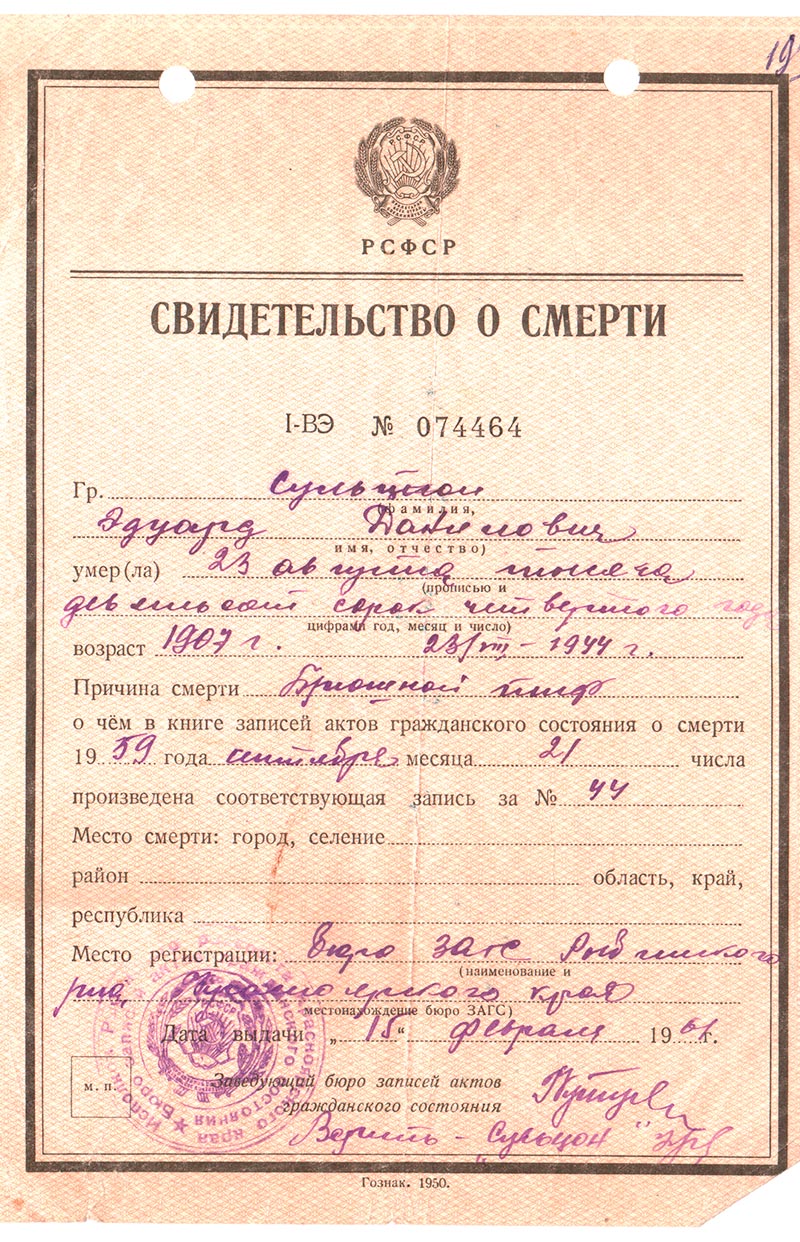 19
РСФСР
РСФСР
СВИДЕТЕЛЬСТВО О СМЕРТИ
I-ВЭ № 074464
Гр. Сульцнои
(фамилия,
Эдуард Данилович
имя, отчество)
умер(ла) 23 августа тысяча
(прописью и
девятьсот сорок четвертого года
цифрами год, месяц и число)
возраст 1907 г. 23/VIII - 1944 г.
Причина смерти Брюшной тиф
о чём в книге записей актов гражданского состояния о смерти
19 59 года сентября месяца 21 числа
произведена соответствующая запись за № 44
Место смерти: город, селение
район область, край,
республика
Место регистрации: Бюро ЗАГС Рыбинского
(наименование и
р-на, Красноярского края
местонахождение бюро ЗАГС)
Дата выдачи „15“ февраля 1961 г.
М. П.
Заведующий бюро записей актов
гражданского состояния
Верить - „Сульцон"
Гознак. 1950.